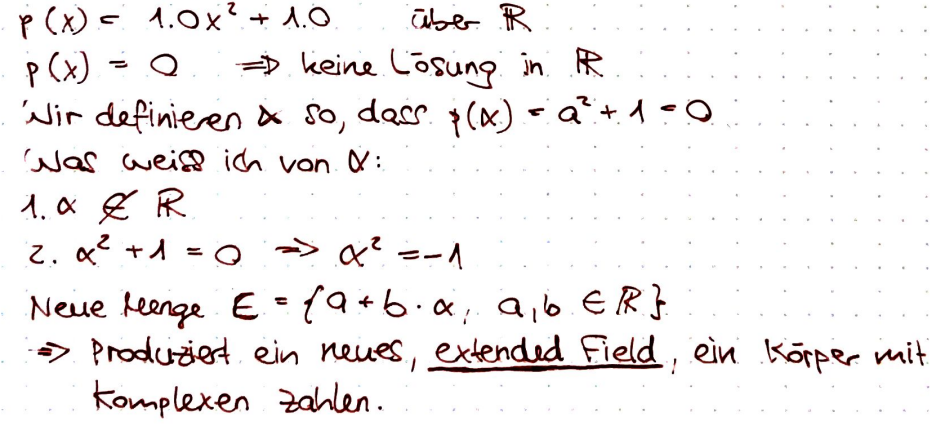 p(x) = 1.0x² + 1.0 über ℝ
p(x) = 0 ⇒ keine Lösung in ℝ
Wir definieren α so, dass p(α) = a² + 1 = 0
Was weiss ich von α:
1. α ∉ ℝ
2. α² + 1 = 0 ⇒ α² = -1
Neue Menge E = {a + b · α, a, b ∈ ℝ}
⇒ Produziert ein neues, extended Field, ein Körper mit
komplexen Zahlen.